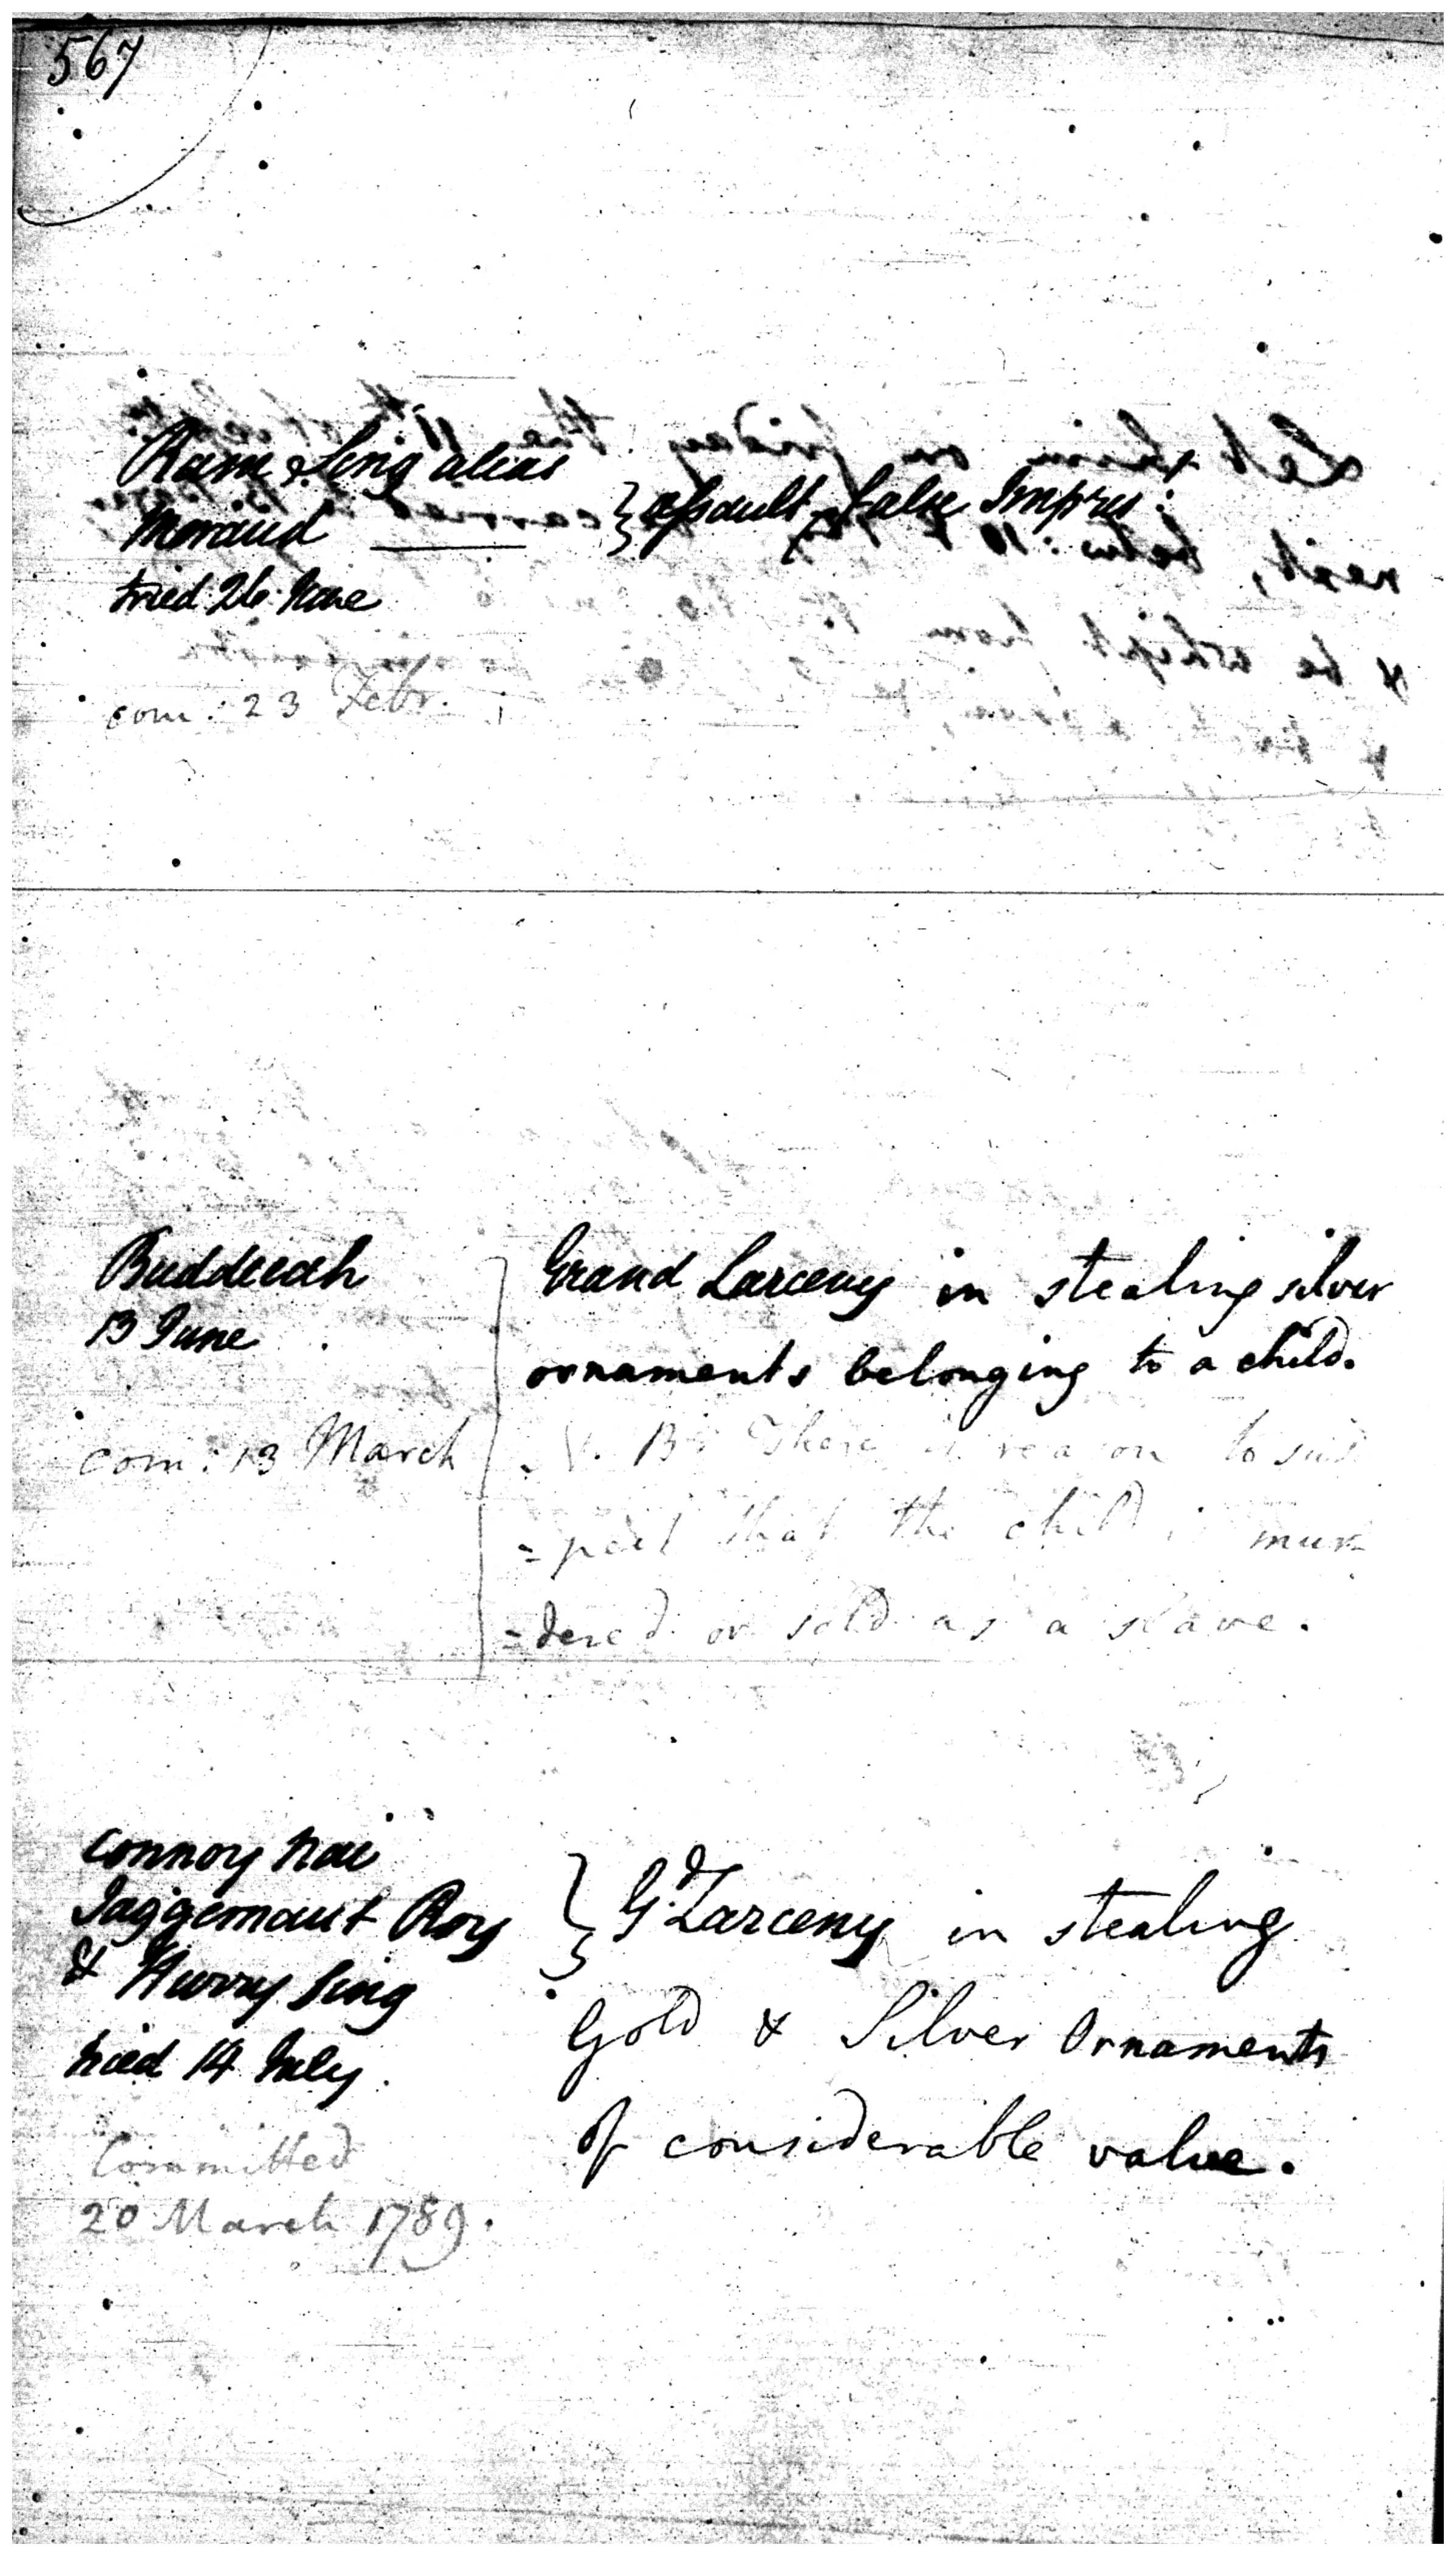 567
Ram Sing alias
Moraud
} assault & false Impris:
tried 26 June
com: 23 Febr.
Buddeeah
13 June
com: 13 March
Grand Larceny in stealing silver
ornaments belonging to a child.
N. B. There is reason to sus
=pect that the child is mur
=dered or sold as a slave.
Connoy Rae
Jaggernaut Roy
& Hurry Sing
tried 14 July.
Committed
20 March 1789.
} Gd. Larceny in stealing
Gold & Silver Ornaments
of considerable value.